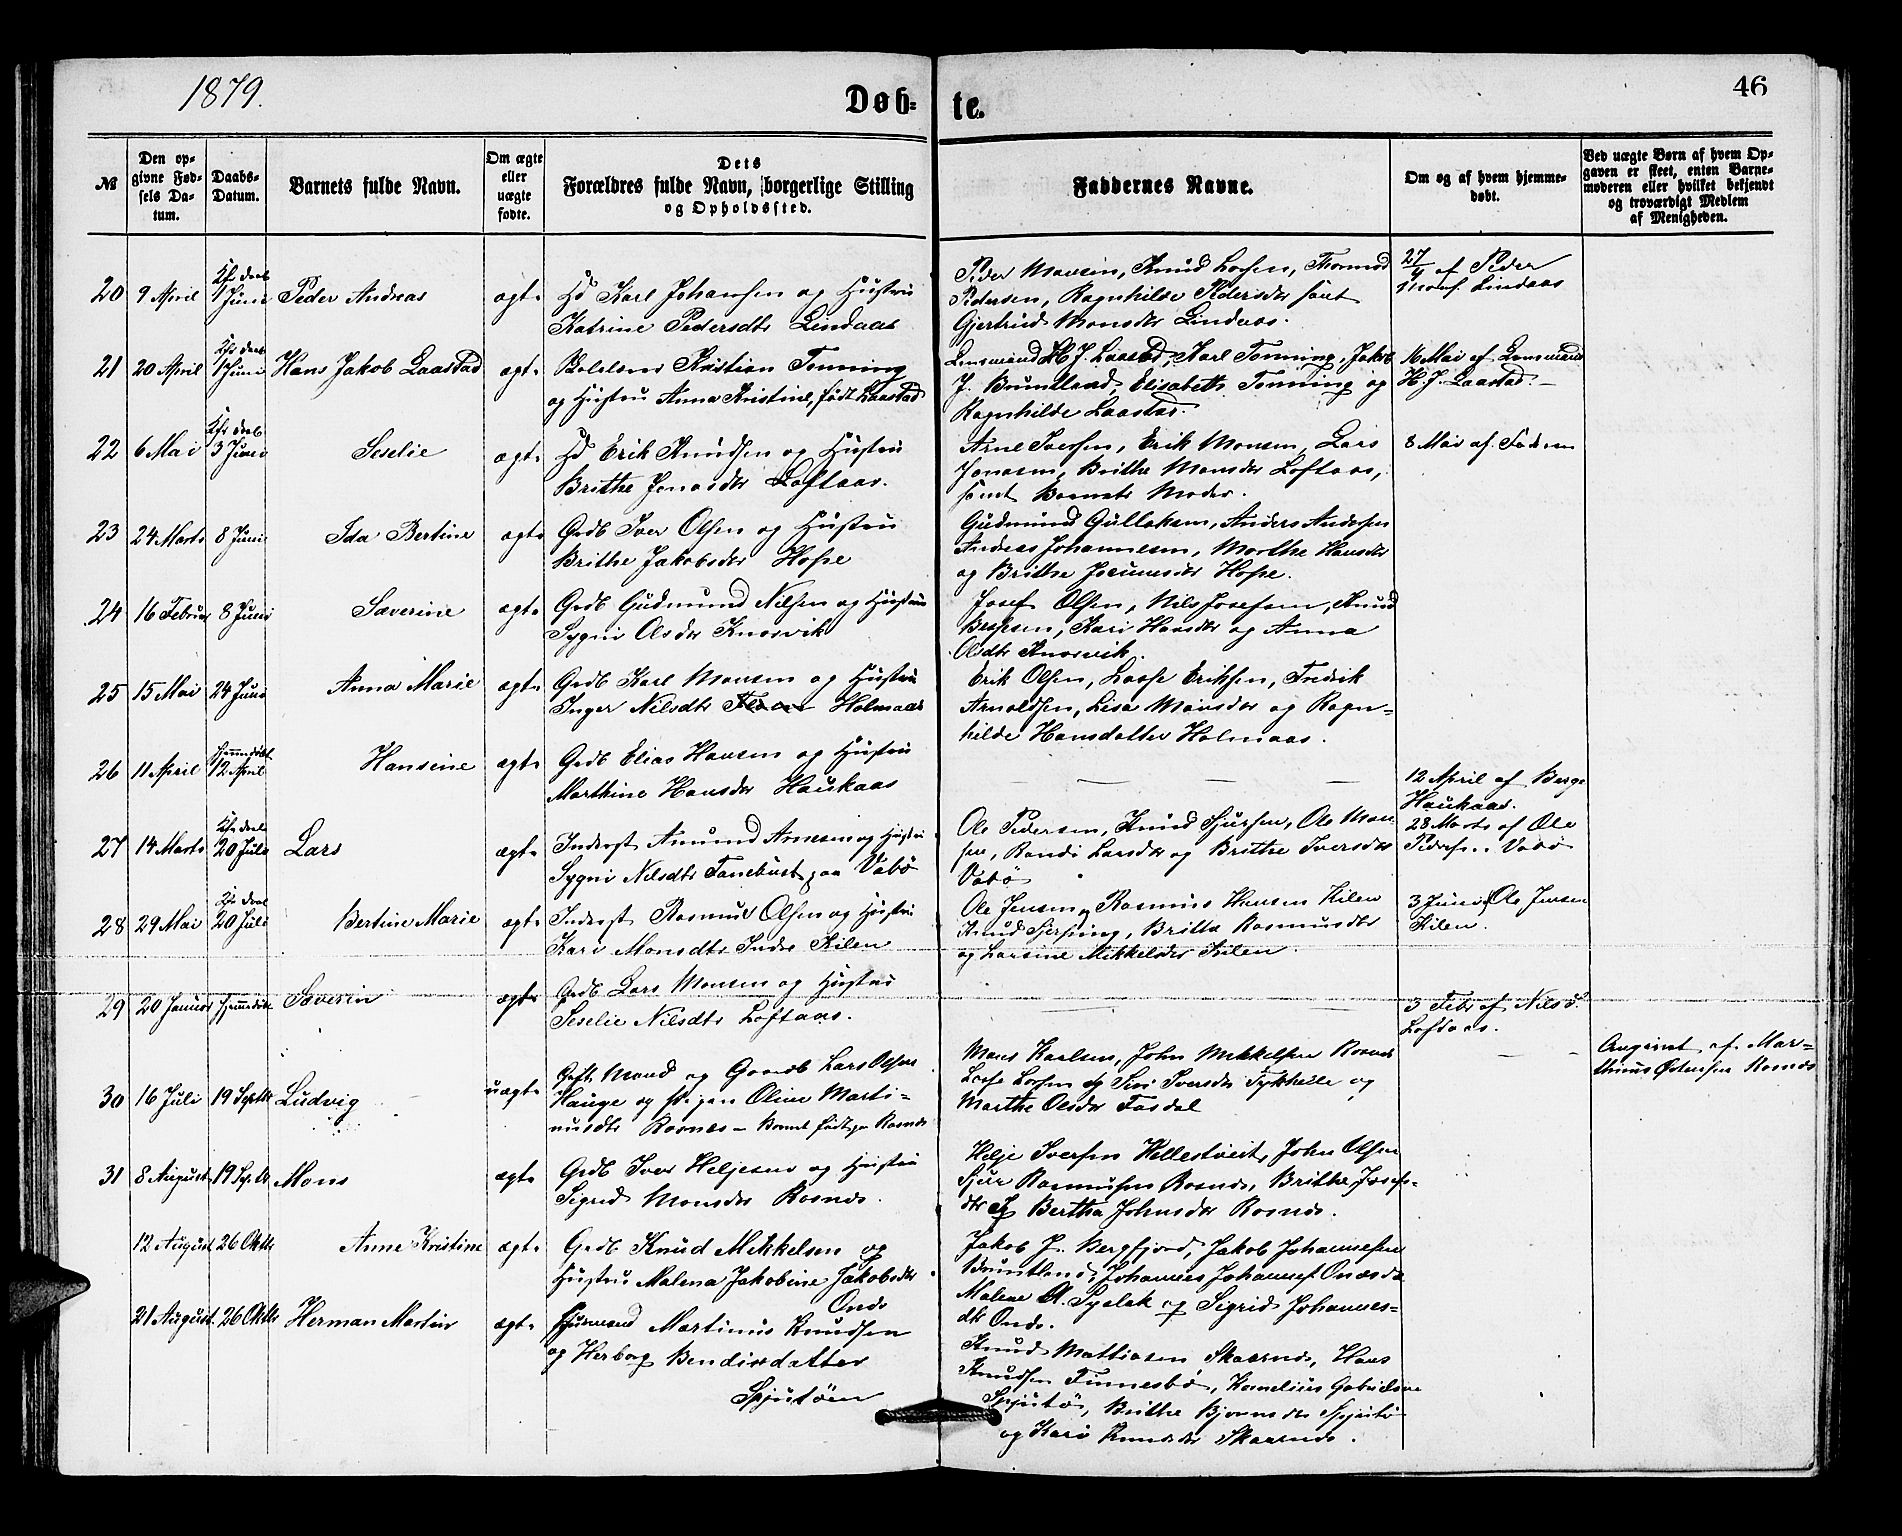 1879.
Døb-
te.
46
№
Den op-
givne Fød-
sels Da-
tum.
Daabs-
Datum.
Barnets fulde Navn.
Om ægte
eller
uægte
fødte.
Dets
Forældres fulde Navn, borgerlige Stilling
og Opholdssted.
Faddernes Navne.
Om og af hvem hjemme-
døbt.
Ved uægte Børn af hvem Op-
gaven er skeet, enten Barne-
moderen eller hvilket bekjendt
og troværdigt Medlem
af Menigheden.
20 9 April 1 Juni Peder Andreas ægte Karl Johansen og Hustru
Katrine Pedersdtr Lindaas
Peder Monsen, Knud Larsen, Thormod
Pedersen, Ragnhilde Pedersdtr samt
Gjertrud Monsdtr Lindaas.
27/4 af Peder
Mons. Lindaas
21 20 April 1 Juni Hans Jakob Laastad ægte Kristian Tonning
og Hustru Anna Kristine, født Laastad
Lensmand H J. Laastad, Karl Tonning, Jakob
J. Bruntland, Elisabeth Tonning og
Ragnhilde Laastad.
16 Mai af Lensmand
H. J. Laastad.
22 6 Mai 3 Juni Seselie ægte Erik Knudsen og Hustru
Brithe Jonasdtr Loftaas.
Arne Iversen, Erik Monsen, Lars
Jonasen, Brithe Monsdtr Loftaas,
samt Barnets Moder.
8 Mai af Faderen
23 24 Marts 8 Juni Ida Bertine ægte Grdb Iver Olsen og Hustru
Brithe Jakobsdtr Hope
Gudmund Gullaksen, Anders Andersen
Andreas Johannesen, Marthe Hansdtr
og Brithe Hope.
24 16 Februar 8 Juni Severine ægte Grdb Gudmund Nilsen og Hustru
Sygni Olsdtr Knarvik
Josef Olsen, Nils Josefsen, Knud
Kari Hansdtr og Anna
Olsdtr Knarvik.
25 15 Mai 24 Juni Anna Marie ægte Grdb Karl Monsen og Hustru
Inger Nilsdtr Holmaas
Erik Olsen, Lasse Eriksen, Fredrik
Arnoldsen, Lisa Monsdtr og Ragn-
hilde Hansdatter Holmaas.
26 11 April Hjemmedøbt 12 April Hansine ægte Grdb Elias Hansen og Hustru
Marthine Hansdtr Haukaas
12 April af Børge
Haukaas.
27 14 Marts 20 Juli Lars ægte Inderst Amund Arnesen og Hustru
Sygni Nilsdtr Tanebust paa Vabø
Ole Pedersen, Knud Sjursen, Ole Mon
sen, Randi Larsdtr og Brithe Iversdtr
Vabø
28 Marts af Ole
Pedersen Vabø
28 29 Mai 20 Juli Bertine Marie ægte Inderst Rasmus Olsen og Hustru
Kari Monsdtr Indre Kilen
Ole Jensen, Rasmus Hansen Kilen
Knud Britta Rasmusdtr
og Larsine Mikkelsdtr Kilen.
3 Juni af Ole Jensen
Kilen.
29 20 Januar Hjemmedøbt Severin ægte Grdb Lars Monsen og Hustru
Seselie Nilsdtr Loftaas.
3 Febr af Nils
Loftaas.
30 16 Juli 19 Septbr Ludvig uægte Gift Mand og Gaardb Lars Olsen
Hauge og Pigen Oline Marti-
nusdtr Rosnes – Barnet født paa Rosnes
Mons Karlsen, John Mikkelsen Rosnes
Lasse Larsen og Siri Iversdtr og
Marthe Olsdtr Fosdal
Angivet af Mar-
thinus Østensen Rosnes
31 8 August 19 Septbr Mons ægte Grdb Iver Heljesen og Hustru
Sigrid Monsdtr Rosnes.
Helje Iversen Hellestveit, John Olsen
Sjur Rasmusen Rosnes, Brithe Josefs-
dtr og Bertha Johnsdtr Rosnes.
12 August 26 Oktbr Anne Kristine ægte Grdb Knud Mikkelsen og
Hustru Malena Jakobine Jakobsdtr
Onds
Jakob J. Bergfjord, Jakob Johannesen
Bruntland, Johannes Johannes.
Malene A. og Sigrid Johannes-
dtr Onds.
21 August 26 Oktbr Herman Martin ægte Husmand Martinus Knudsen
og Herborg Bendixdatter
Spjutøen
Knud Mathiasen Skaarnes, Hans
Knudsen Finnesbø, Kornelius Gabrielsen
Spjutø, Brithe Bjørnsdtr Spjutø
og Kari Knudsdtr Skaarnes.